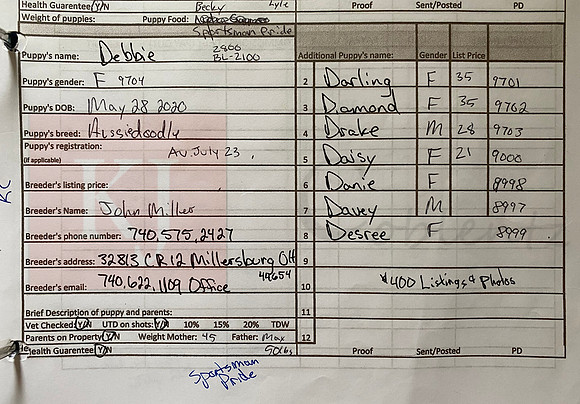 Becky Lyle
Health Guarantee Y/N Proof Sent/Posted PD
Weight of puppies: Puppy Food:
Sportsman Pride
Puppy's name: Debbie 2800 Additional Puppy's name: Gender List Price
BL-2100
Puppy's gender: F 9704 2 Darling F 35 9701
Puppy's DOB: May 28 2020 3 Diamond F 35 9702
Puppy's breed: Aussiedoodly 4 Drake M 28 9703
Puppy's registration: Av. July 23, 5 Daisy F 21 9000
(if applicable)
Breeder's listing price: 6 Danie F 8998
Breeder's Name: John Miller 7 Davey M 8997
Breeder's phone number: 740,575,2427 8 Desree F 8999.
Breeder's address: 32813 CR 12 Millersburg OH 9
44654
Breeder's email: 740,622,1109 Office 10 $400 Listings & Photos
Brief Description of puppy and parents: 11
Vet Checked: Y/N UTD on shots: Y/N 10% 15% 20% TDW
Parents on Property Y/N Weight Mother: 45 Father: Max 12
50lbs
Health Guarantee Y/N Proof Sent/Posted PD
Sportsman
Pride